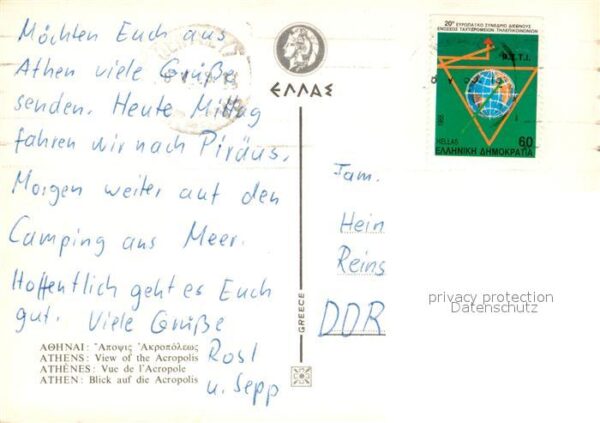 Möchten Euch aus
Athen viele Grüße
senden. Heute Mittag
fahren wir nach Piräus.
Morgen weiter auf den
Camping ans Meer.
Hoffentlich geht es Euch
gut. Viele Grüße
Rosl
u. Sepp
ΑΘΗΝΑΙ: Ἄποψις Ἀκροπόλεως
ATHENS: View of the Acropolis
ATHÈNES: Vue de l'Acropole
ATHEN: Blick auf die Akropolis
ΕΛΛΑΣ
GREECE
20º ΕΥΡΩΠΑΪΚΟ ΣΥΝΕΔΡΙΟ ΔΙΕΘΝΟΥΣ
ΕΝΩΣΕΩΣ ΤΑΧΥΔΡΟΜΕΙΩΝ ΤΗΛΕΠΙΚΟΙΝΩΝΙΩΝ
P.T.T.I.
1988
HELLAS
60
ΕΛΛΗΝΙΚΗ ΔΗΜΟΚΡΑΤΙΑ
Fam.
Hein
Reins
DDR
privacy protection
Datenschutz